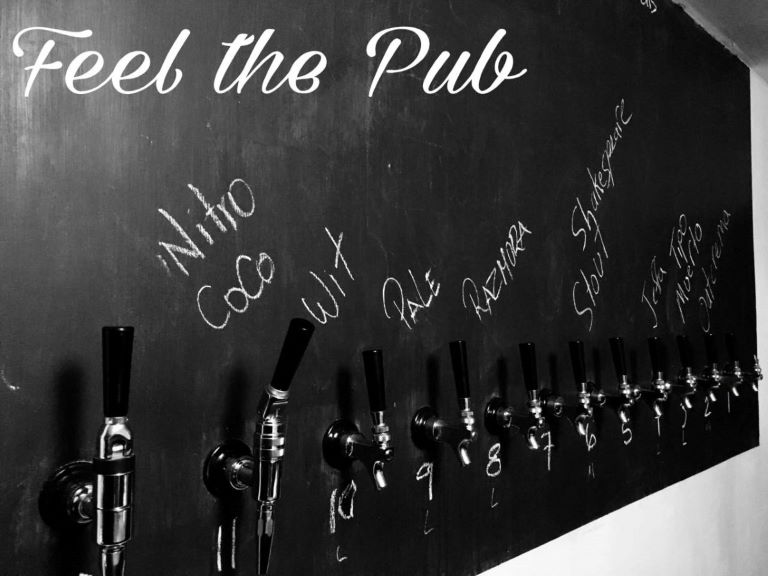 Feel the Pub
Nitro
CoCo
Wit
PALE
RAZMORA
Shakespeare
Stout
Tipo
Muerto
10
9
8
7
6
5
4
3
2
1